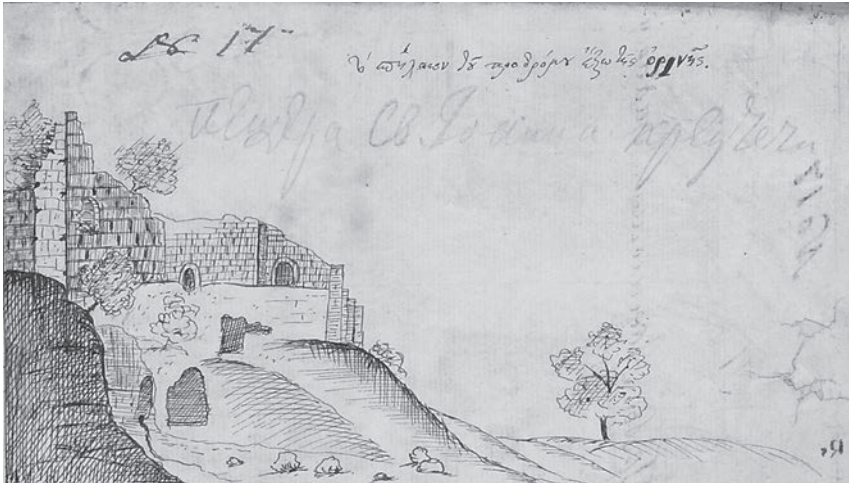 № 17
τὸ σπήλαιον τȣ͂ προδρόμȣ ἔξω τῆς ὀρινῆς.
пещера Св. Іоанна предтечи